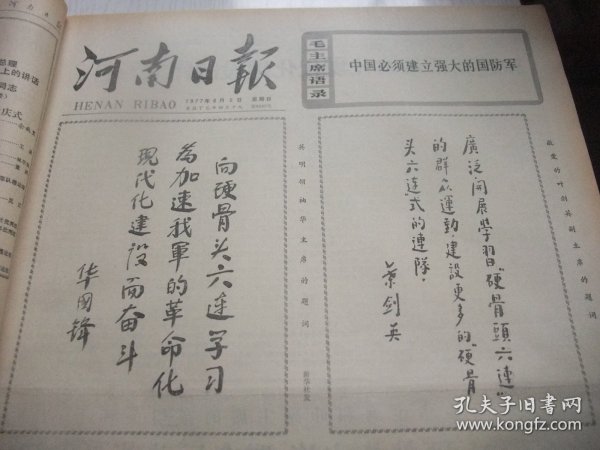 河南日報
HENAN RIBAO
1977年6月2日 星期四
毛主席语录
中国必须建立强大的国防军
上的讲话
庆式
英明领袖华主席的题词
向硬骨头六连学习
為加速我軍的革命化
現代化建設而奋斗
华国锋
新华社发
敬爱的叶剑英副主席的题词
廣泛開展學習"硬骨頭六連"
的群众運動，建設更多的"硬骨
头六連式的連隊．
葉剑英
孔夫子旧书网
kongfz.com